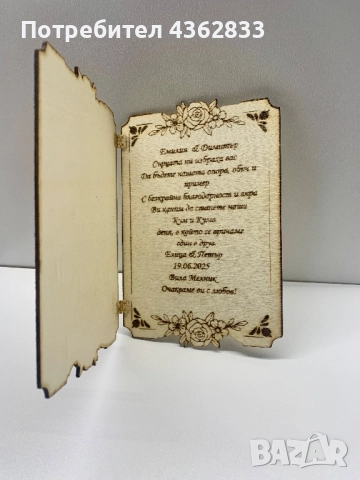 Потребител 4362833
Емилия & Димитър
Сърцата ни избраха вас
Да бъдете нашата опора, обич и
пример
С безкрайна благодарност и вяра
Ви каним да станете наши
Кум и Кума
деня, в който се вричаме
един в друг
Елица & Петър
19.06.2025
Вила Мелник
Очакваме ви с любов!
BAZAR